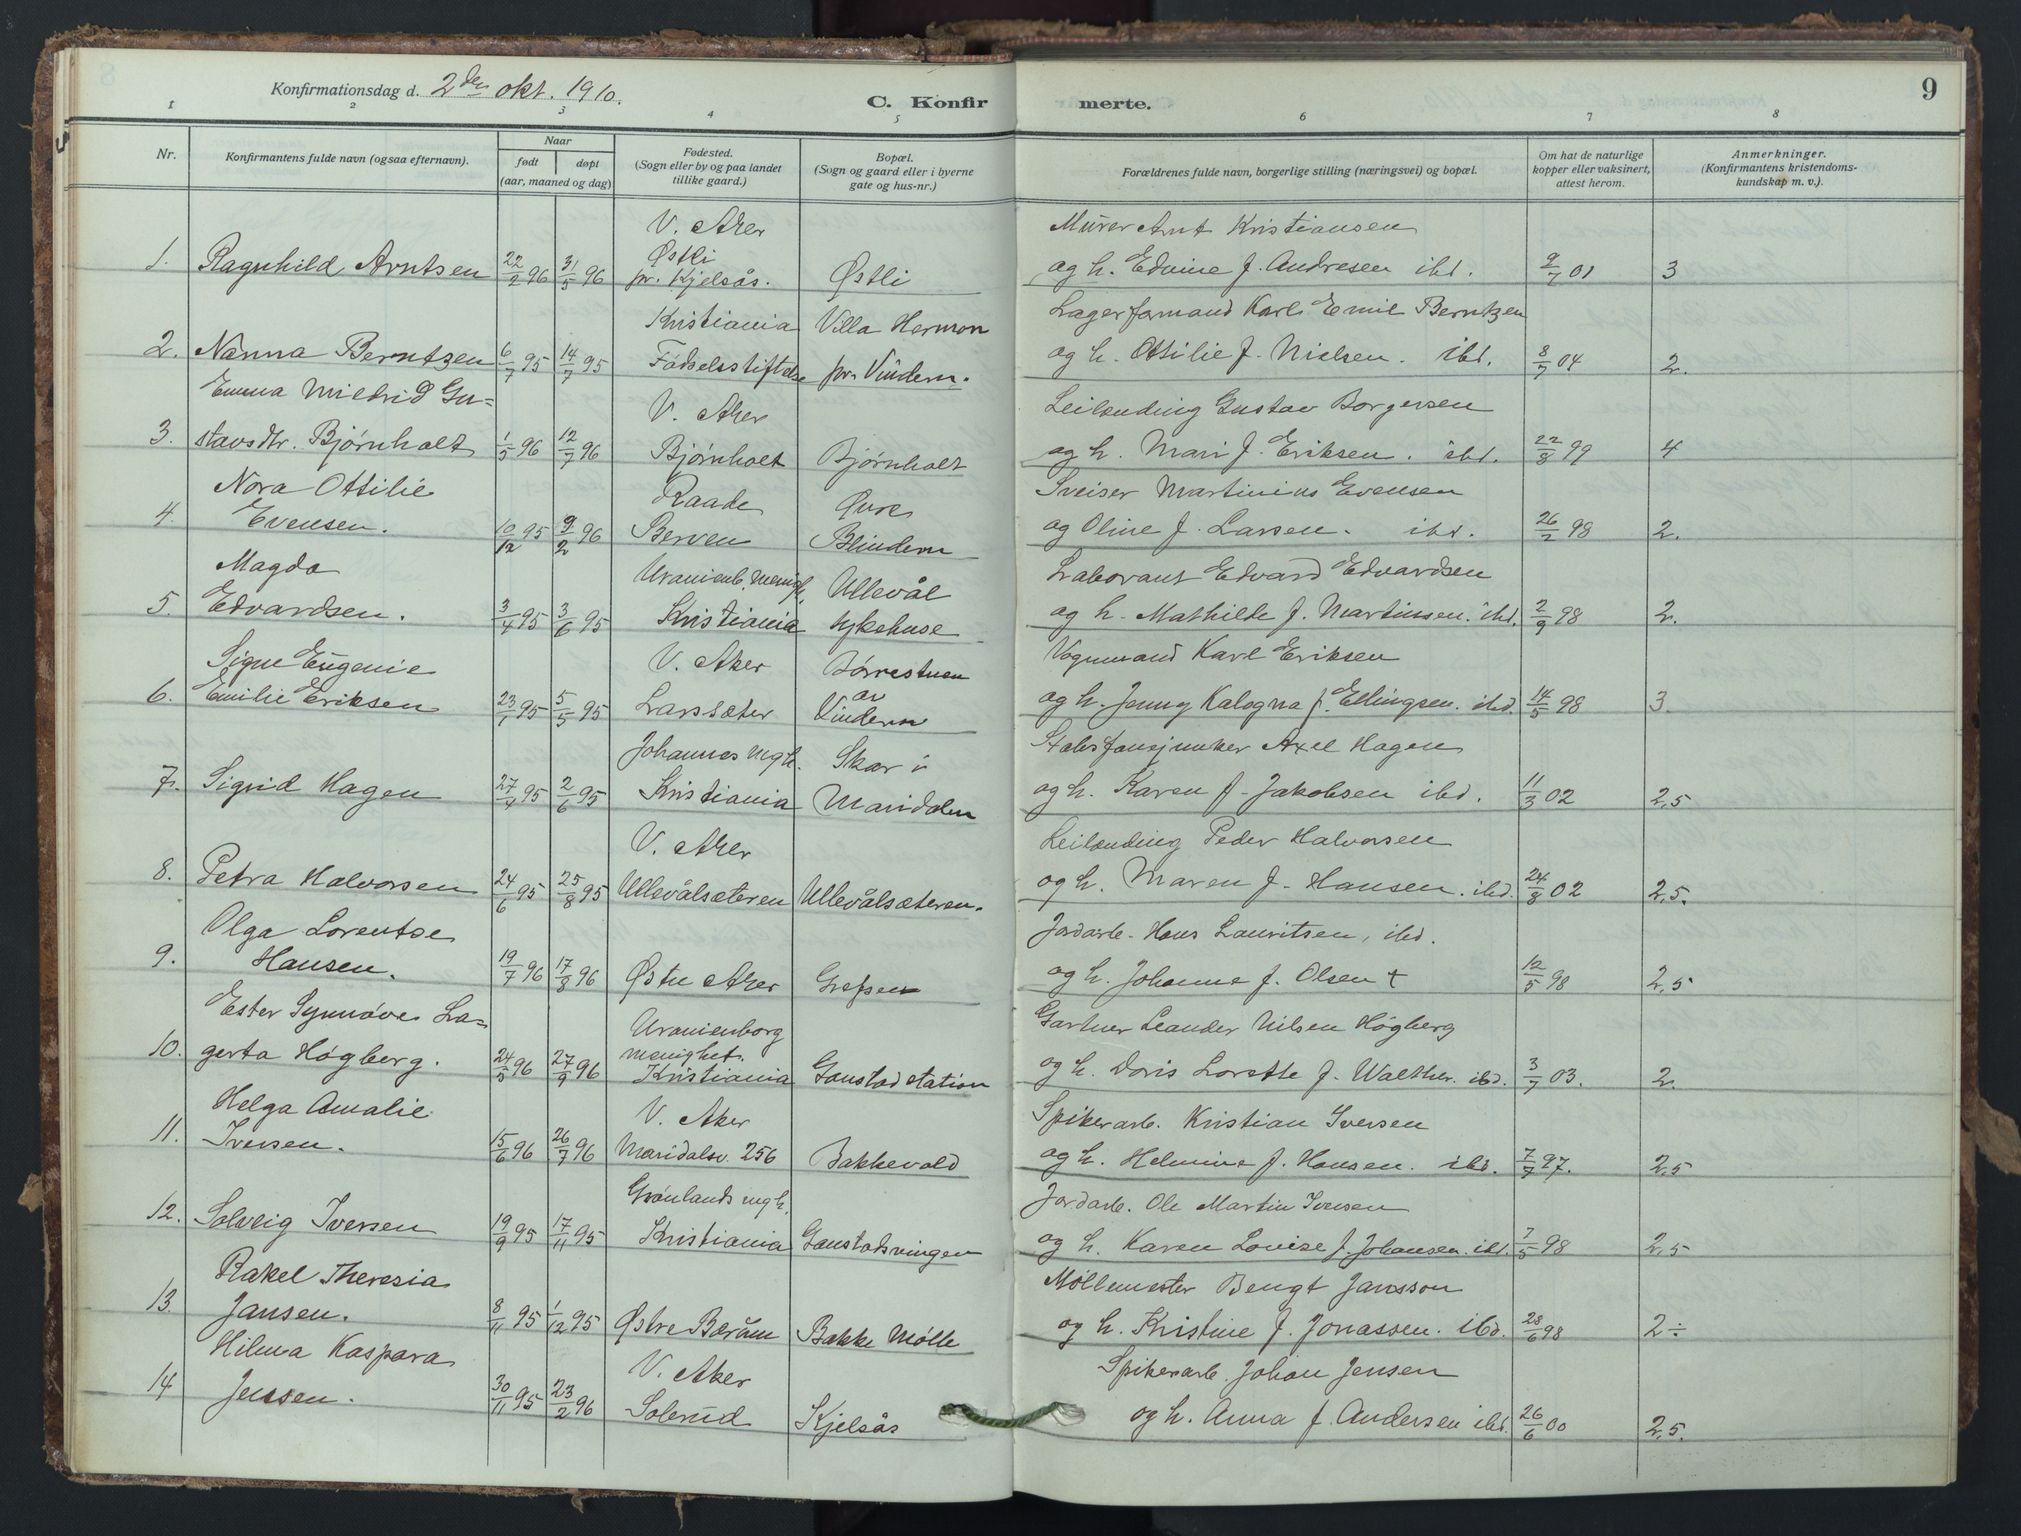 Konfirmationsdag d. 2den okt. 1910.
C. Konfir
merte.
9
1 2 3 4 5 6 7 8
Nr.
Konfirmantens fulde navn (ogsaa efternavn).
Naar
født
døpt
(aar, maaned og dag)
Fødested.
(Sogn eller by og paa landet
tillike gaard.)
Bopæl.
(Sogn og gaard eller i byerne
gate og hus-nr.)
Forældrenes fulde navn, borgerlige stilling (næringsvei) og bopæl.
Om hat de naturlige
kopper eller vaksinert,
attest herom.
Anmerkninger.
(Konfirmantens kristendoms-
kundskap m. v.).
V. Aker
Murer Arnt Kristiansen
Østli
1. Ragnhild Arntsen 22/2 96 31/5 96 pr. Kjelsås. Østli og h. Edvine f. Andresen ibd. 9/7 01 3
Kristiania Villa Hermon Lagerformand Karl Emil Berntzen
2. Nanna Berntzen 6/7 95 14/7 95 Fødselsstiftelse pr. Vindern. og h. Ottilie f. Nielsen. ibd. 8/7 04 2.
Emma Mildrid Gu=
V. Aker Leilending Gustav Borgersen
3. stavsdtr. Bjørnholt 1/5 96 12/7 96 Bjørnholt Bjørnholt og h. Mari f. Eriksen. ibd. 22/8 99 4
Nora Ottilie Raade Øvre Sveiser Martinius Evensen
4. Evensen. 10/12 95 9/2 96 Berven Blindern og Oline f. Larsen. ibd. 26/2 98 2.
Magda Uranienb. menigh. Ullevål Laborant Edvard Edvardsen
5. Edvardsen. 3/4 95 3/6 95 Kristiania sykehuse og h. Mathilde f. Martinssen. ibd. 2/9 98 2.
Signe Eugenie V. Aker Vognmand Karl Eriksen
av
6. Emilie Eriksen 23/1 95 5/5 95 Larssæter Vindern og h. Jenny Kalogna f. Ellingsen. ibd. 14/5 98 3.
Johannes mgh. Skar i Stabsfanejunker Axel Hagen
7. Sigrid Hagen 27/4 95 2/6 95 Kristiania Maridalen og h. Karen f. Jakobsen ibd. 11/3 02 2,5
V. Aker Leilending Peder Halvorsen
8. Petra Halvorsen 24/6 95 25/8 95 Ullevålsæteren Ullevålsæteren. og h. Maren f. Hansen. ibd. 24/8 02 2,5.
Olga Lorentse Jordarb. Hans Lauritsen, ibd.
9. Hansen. 19/7 96 17/8 96 Østre Aker Grefsen og h. Johanne f. Olsen + 12/5 98 2,5
Ester Synnøve La= Uranienborg Gartner Leander Nilsen Høgberg
menighet.
10. gerta Høgberg. 24/5 96 27/9 96 Kristiania Gaustad station og h. Doris Lorette f. Walther. ibd. 3/7 03. 2.
Helga Amalie V. Aker Spikerarb. Kristian Iversen
11. Iversen. 15/6 96 26/7 96 Maridalsv. 256 Bakkevold og h. Helmine f. Hansen. ibd. 7/7 97. 2,5
Grønlands mgh. Jordarb. Ole Martin Iversen
12. Solveig Iversen 19/9 95 17/11 95 Kristiania Gaustadsvingen og h. Karen Lovise f. Johansen. ibd. 7/5 98 2,5
Rakel Theresia Møllemester Bengt Jansson
13. Jansen. 8/11 95 1/12 95 Østre Bærum Bakke Mølle og h. Kristine f. Jonassen. ibd. 28/6 98 2÷
Hilma Kaspara V. Aker Spikerarb. Johan Jensen
14 Jenssen. 30/11 95 23/2 96 Solerud Kjelsås og h. Anna f. Andersen ibd. 26/6 00 2,5.